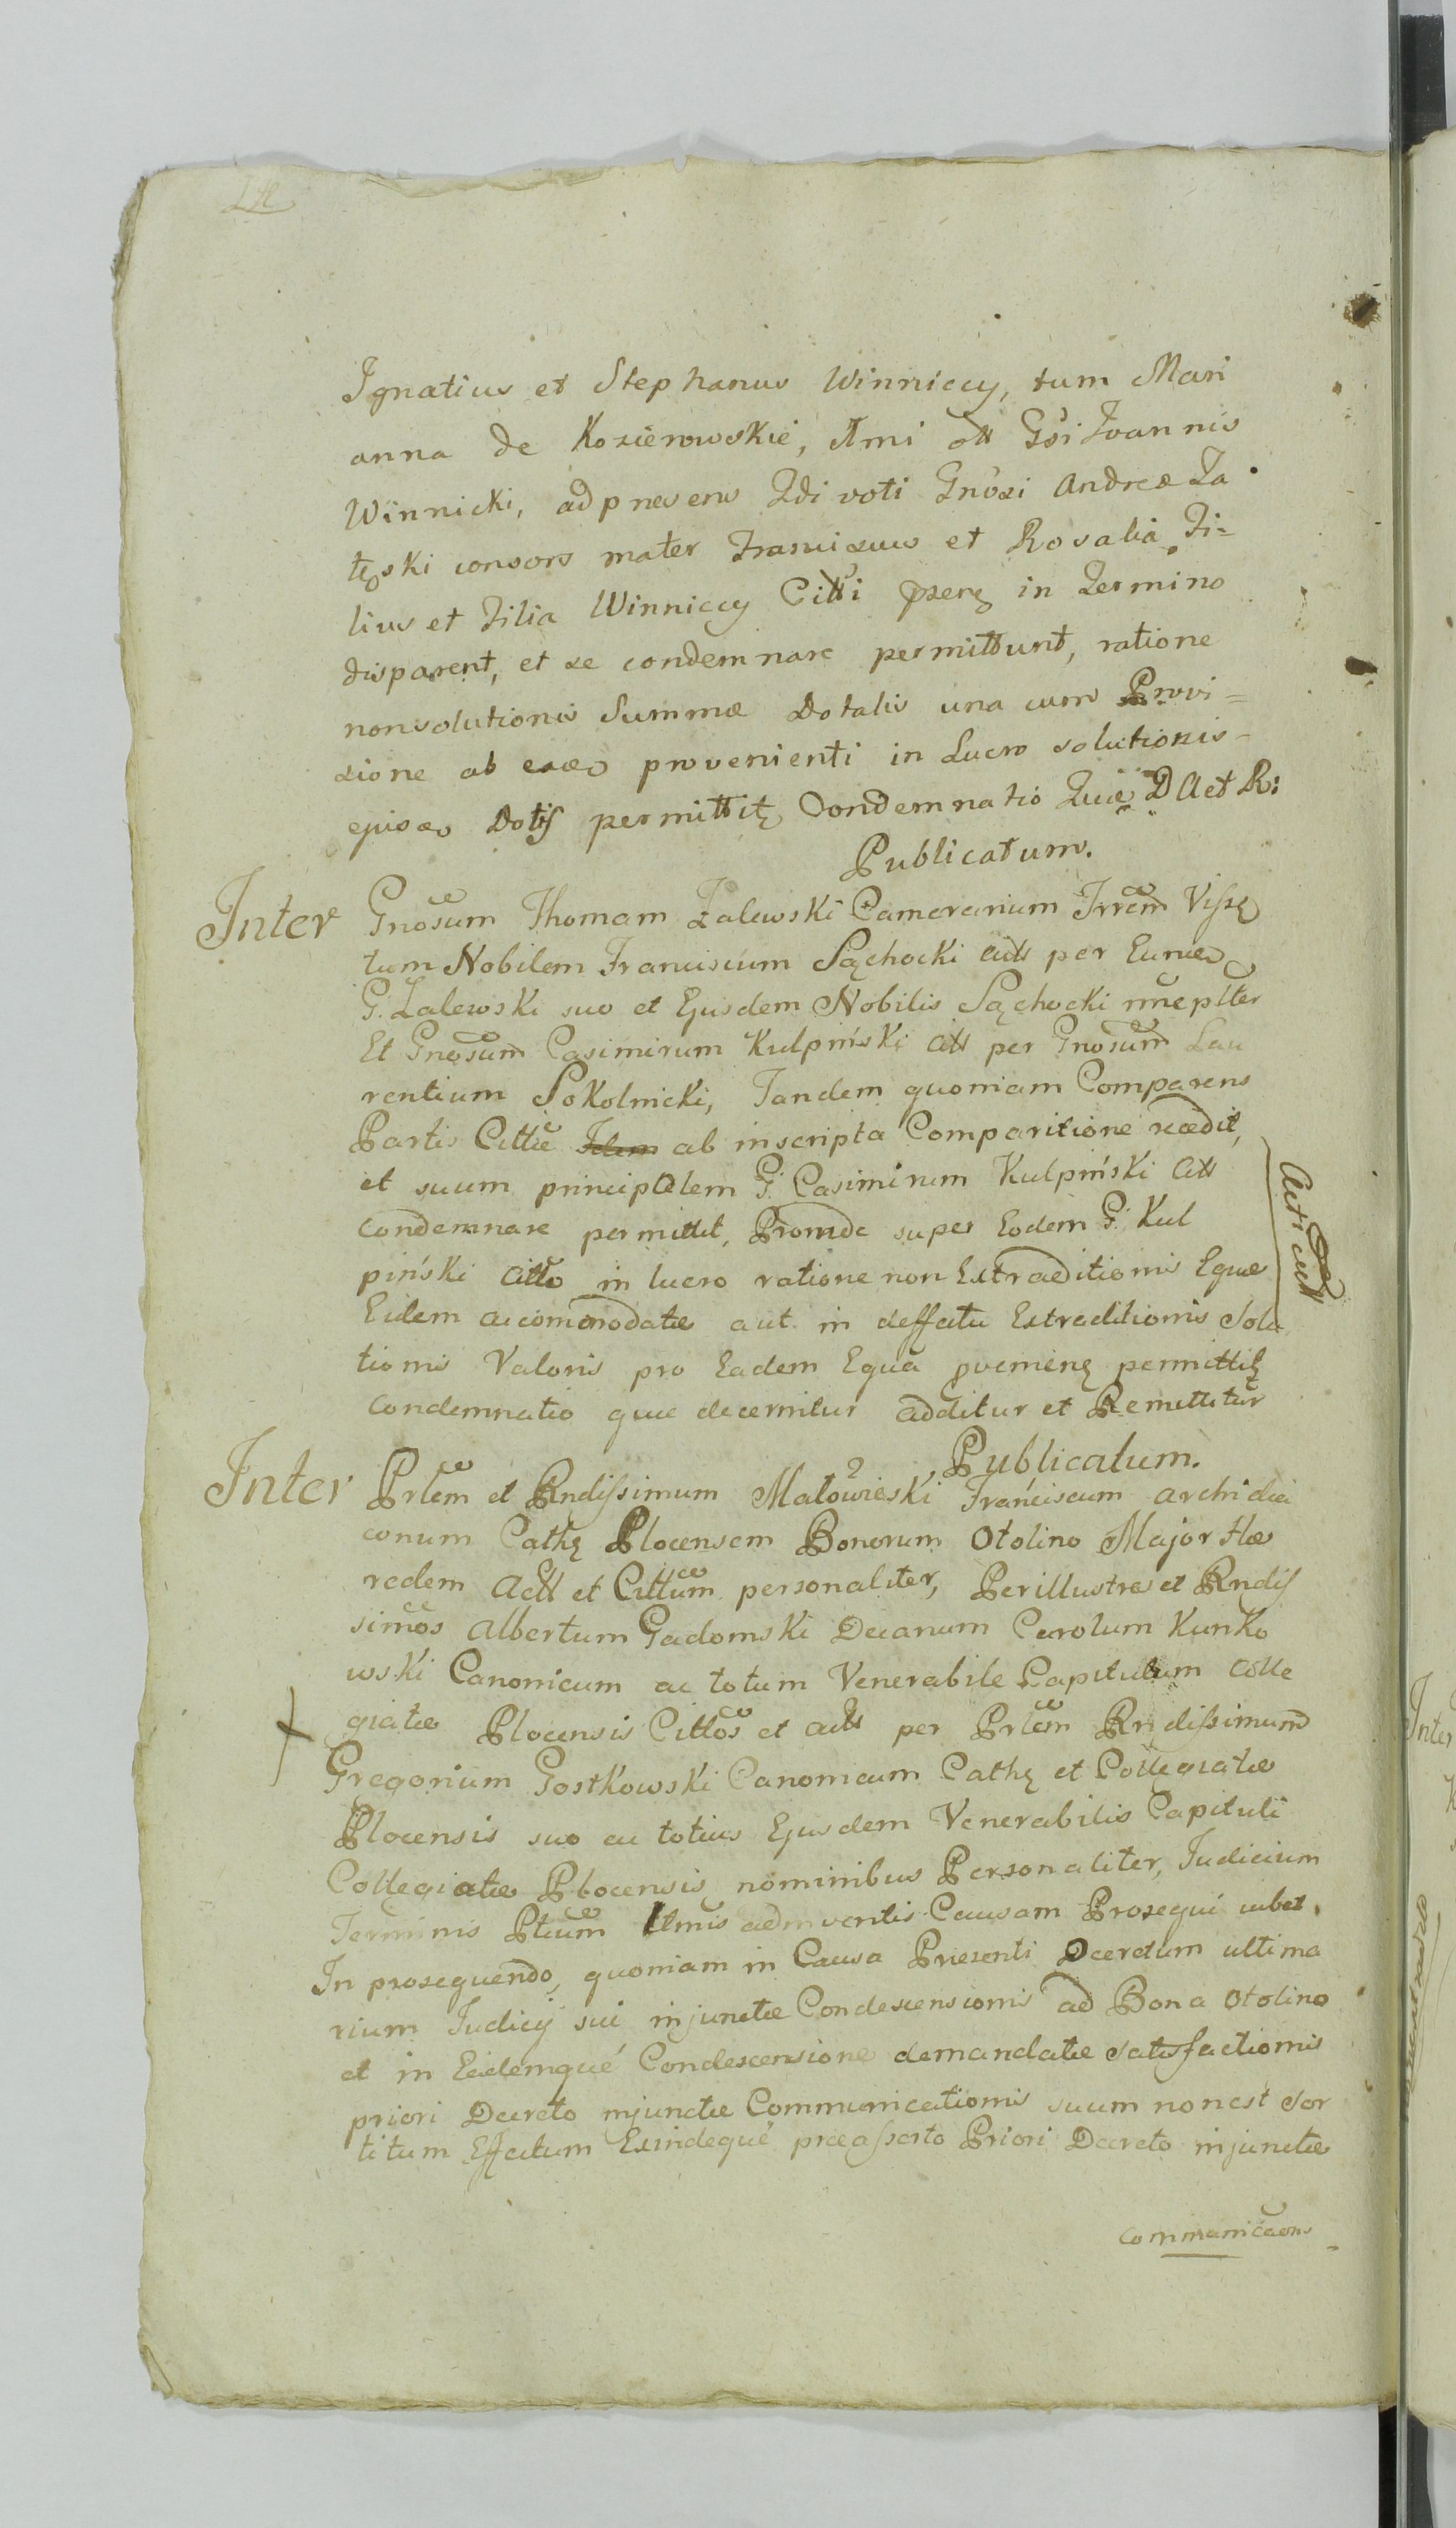 Ignatius et Stephanus Winniccy, tum Mari
anna de Kozierowskie, 1mi olt Gsi Joannis
Winnicki, ad pnesens 2di voti Gnosi Andreæ Za
łęski consors mater Franciscus et Rosalia Fi=
lius et Filia Winniccy Citti in Termino
disparent, et se condemnare permittunt, ratione
nonsolutionis Summæ Dotalis una cum Provi=
sione ab eaæ provenienti in Lucro solutionis
Dotis permittitę Condemnatio Quæ D A et R:
Publicatum.
Inter Gnosum Thomam Zalewski Camerarium
tum Nobilem Franciscum Sąchocki actt per Eunde
G. Zalewski suo et Ejusdem Nobilis Sąchocki
Et Gnosum Casimirum Kulpiński Citt per Gnosum Lau
rentium Sokolnicki, Tandem quoniam Comparens
Partis Cittæ ab inscripta Comparitione recedit,
et suum principalem G. Casimirum Kulpiński Citt
condemnare permittit, Proinde super Eodem G. Kul
piński Citto in lucro ratione non Extraditionis Equæ
Eidem accommodatæ aut in deffectu Extraditionis Solu
tionis Valoris pro Eadem Equa permittitę
Condemnatio quæ decernitur additur et Remittitur
Publicatum.
Inter Prlem et Rndissimum Małowieski Franciscum Archidia
conum Cathę Plocensem Bonorum Otolino Major Hæ
redem Actt et Cittum personaliter, Perillustres et Rndis
simos Albertum Gadomski Decanum Carolum Kunko
wski Canonicum ac totum Venerabile Capitulum Colle
giatæ Plocensis Cittos et actt per Prlem Rndissimum
Gregorium Gostkowski Canonicum Cathę et Collegiatæ
Plocensis suo ac totius Ejusdem Venerabilis Capituli
Collegiatæ Plocensis nominibus Personaliter, Judicium
Terminis Ptium admventis Causam Prosequi jubet.
In prosequendo, quoniam in Causa Præsenti Decretum ultima
rium Judicij sui injunctæ Condescensionis ad Bona Otolino
et in Eademque Condescensione demandatæ satisfactionis
priori Decreto injunctæ Communicationis suum non est Sor
titum Effectum Exindeque præasserto Priori Decreto injunctæ
Communicãons